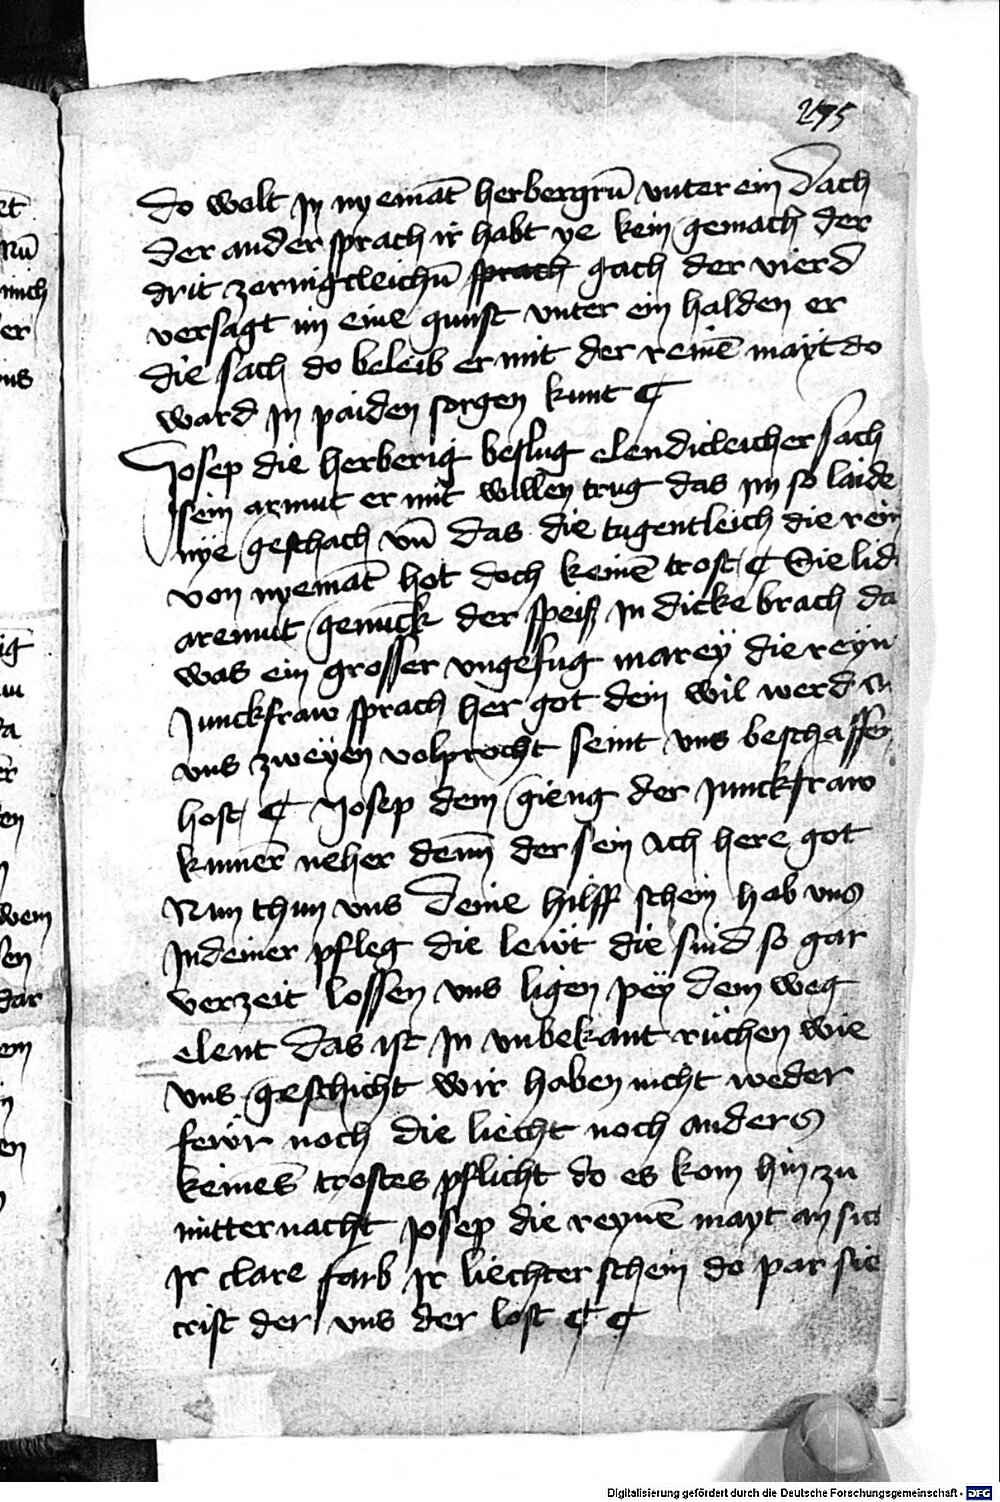 275
do wolt in nyemāt herbergrū vnter ein dach
der ander sprach ir habt ye kein gemach der
drit zornigcleichñ sprach gach der vierd
versagt im eine gunst vnter ein halden er
die sach do beleib er mit der reinē mayt do
ward in paiden sorgen kunt ¶
Josep die herberig beslug elendicleicher sach
sein armut er mit willen trug das im so laide
nye geschach vñ das die tugentleich die rein
von nyemāt hot doch keinē trost ¶ Sie lid
aremut genuck der speiß in dicke brach da
was ein grosser vngefug marey die reyn
Junckfraw sprach her got dein wil werd an
vns zweyen volprocht seint vns beschaffen
host ¶ Josep dem gieng der Junckfraw
kumer neher denn der sein Ach here got
Nun thun vns deine hilff schein hab vns
In deiner pfleg die lewt die sind so gar
verzeit lossen vns ligen pey dem weg
elent das ist in vnbekant ruchen wie
vns geschicht wir haben nicht weder
fewr noch die liecht noch anders
keines trostes pflicht do es kom hin zu
mitternacht Josep die reynē mayt an sach
Ir clare farb Ir liechter schein do par sie
crist der vns der lost ¶ ¶
Digitalisierung gefördert durch die Deutsche Forschungsgemeinschaft - DFG